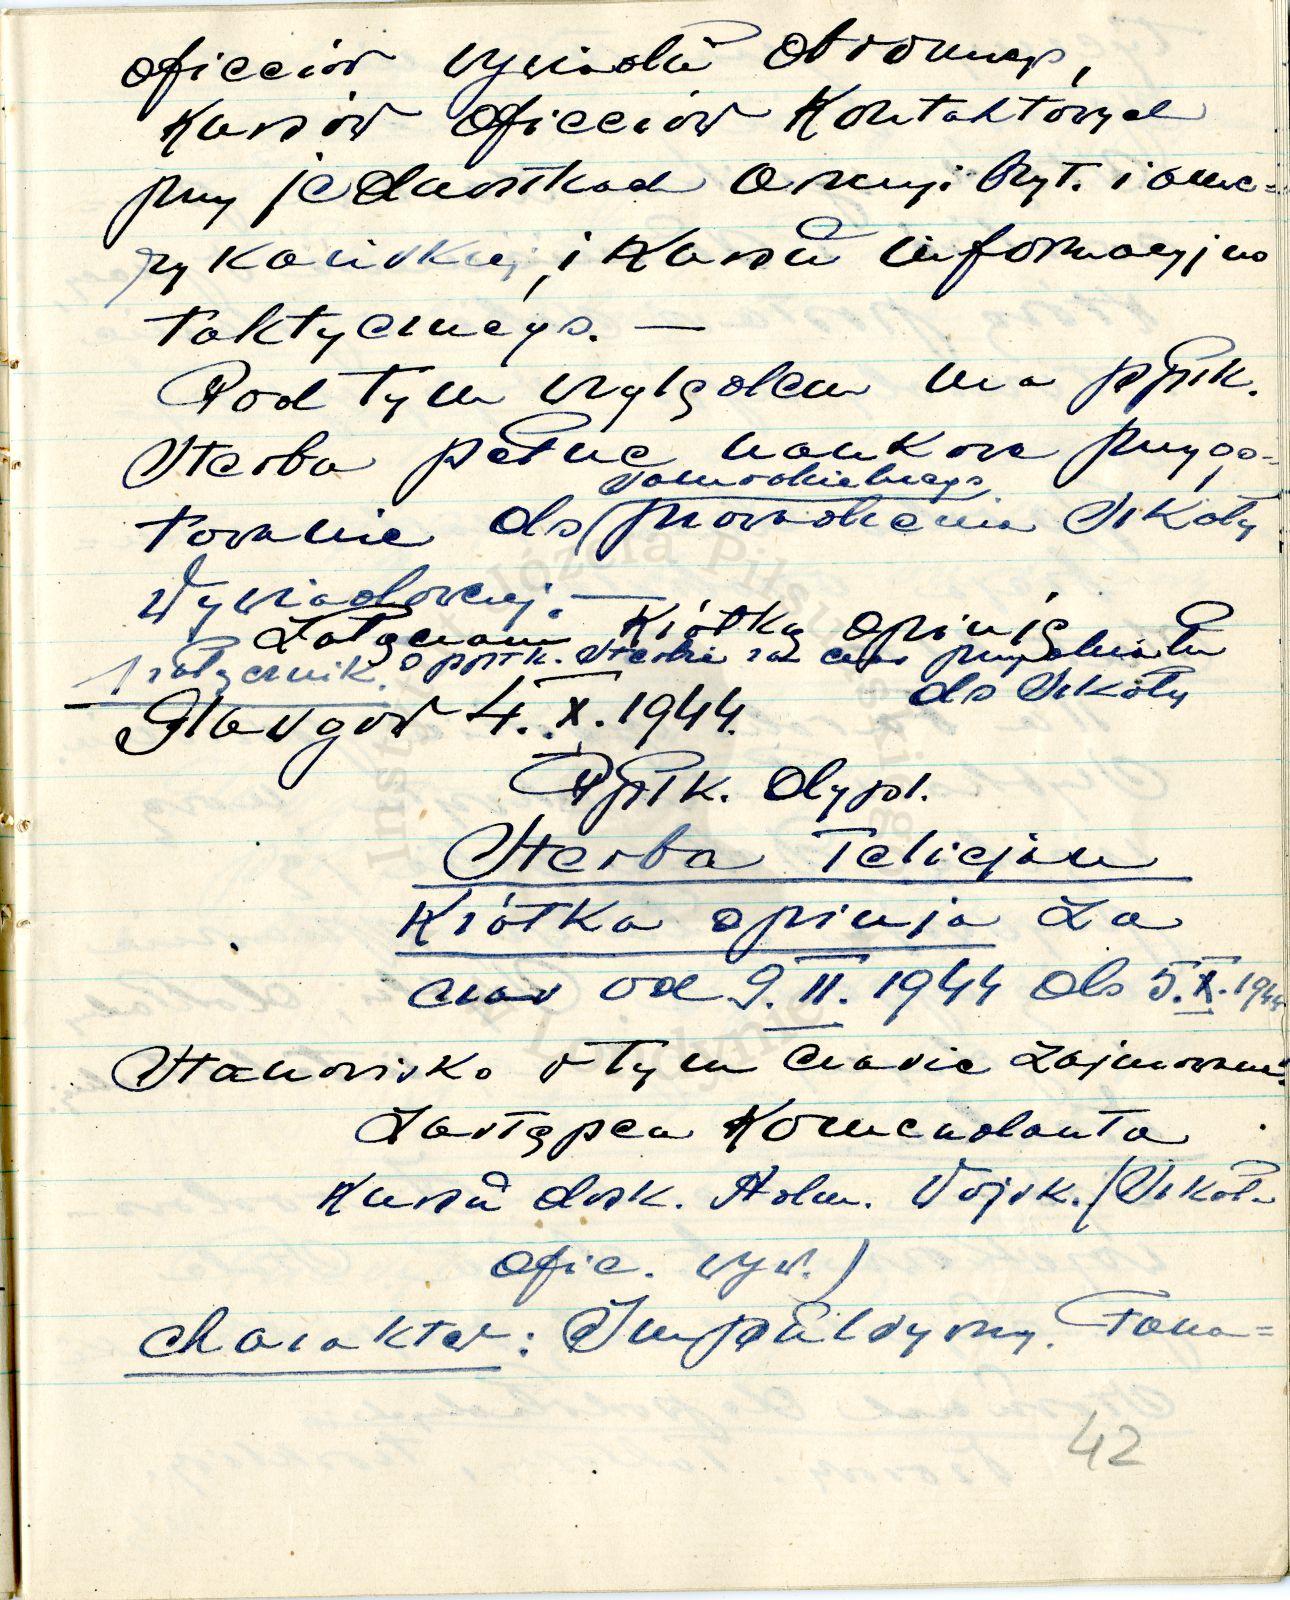 oficerów wywiadu obronnego,
Kursów oficerów Kontaktowych
przy jednostkach armji bryt. i ame=
rykańskiej, i Kursu informacyjno
taktycznego. —
Pod tym względem ma ppłk.
Sterba pełne naukowe przygo=
samodzielnego
towanie do prowadzenia Szkoły
Wywiadowczej. —
Załączam Krótką opinię
1 załącznik. o ppłk. Sterbie za czas przydziału
do Szkoły
Glasgow 4.X.1944.
Ppłk. dypl.
Sterba Felicjan
Krótka opinja za
czas od 9.II.1944 do 5.X.1944
Stanowisko w tym czasie zajmowane:
Zastępca Komendanta
Kursu dosk. Adm. Wojsk. (Szkoła
ofic. wyw.)
Charakter: Impulsywny.
42
Instytut Józefa Piłsudskiego
w Londynie